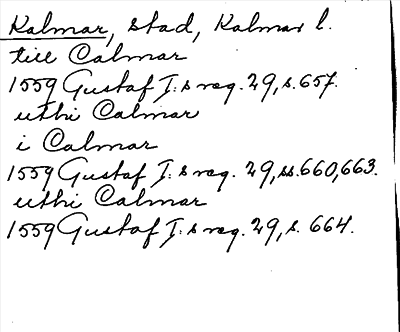 Kalmar, stad, Kalmar l.
till Calmar
1559 Gustaf I:s reg. 29, s. 657.
uthi Calmar
i Calmar
1559 Gustaf I:s reg. 29, ss. 660, 663.
uthi Calmar
1559 Gustaf I:s reg. 29, s. 664.